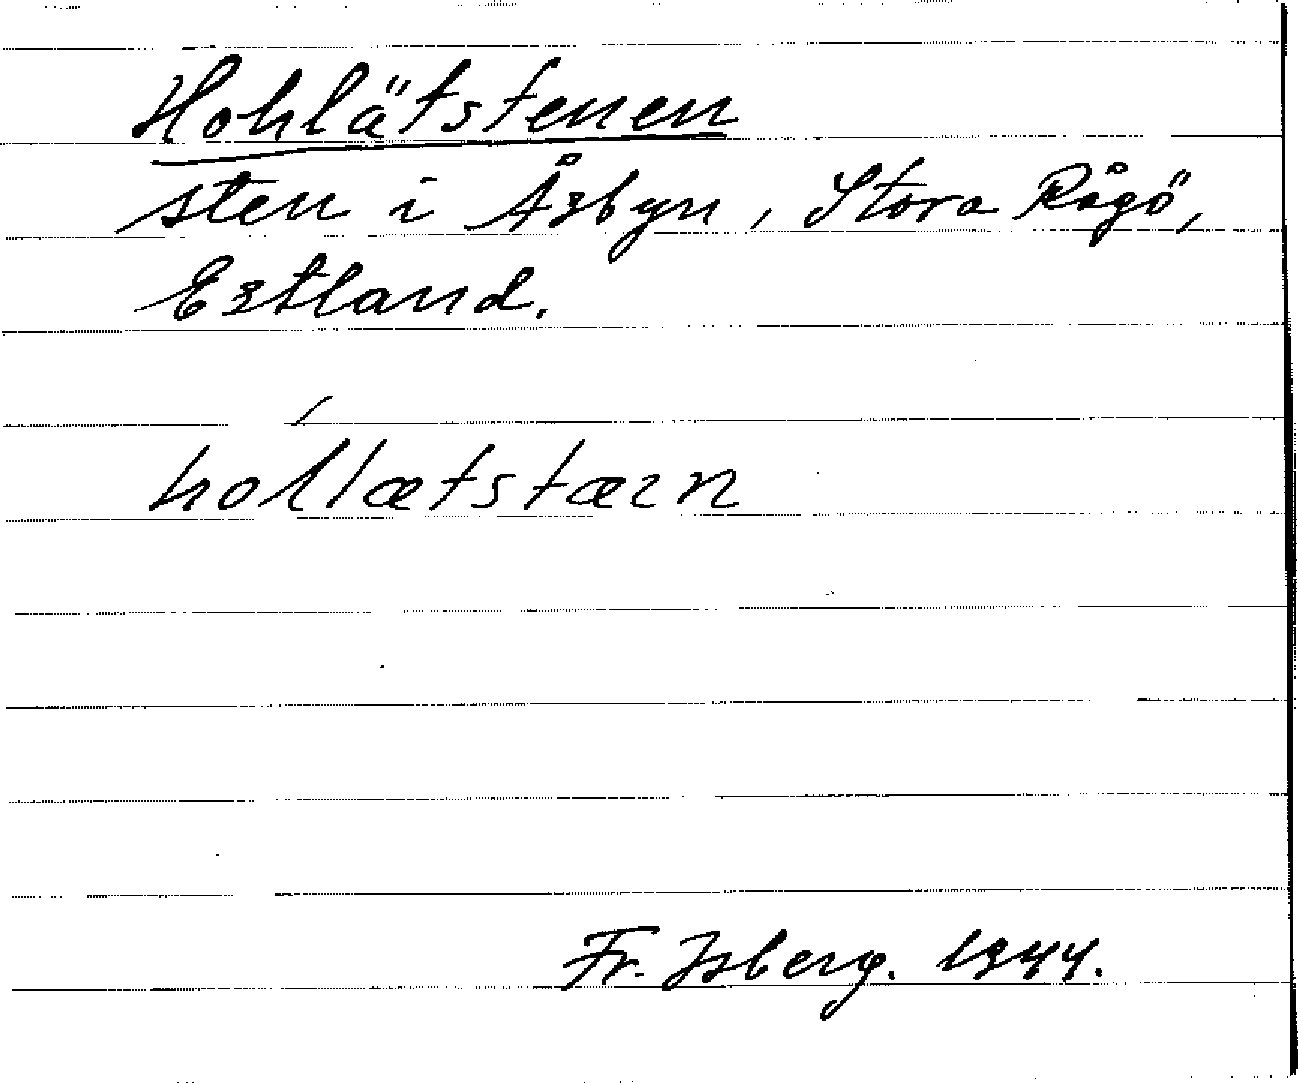 Hohlätstenen
sten i Åsbyn, Stora Rågö,
Estland.
hollætstæin
Fr. Isberg. 1944.